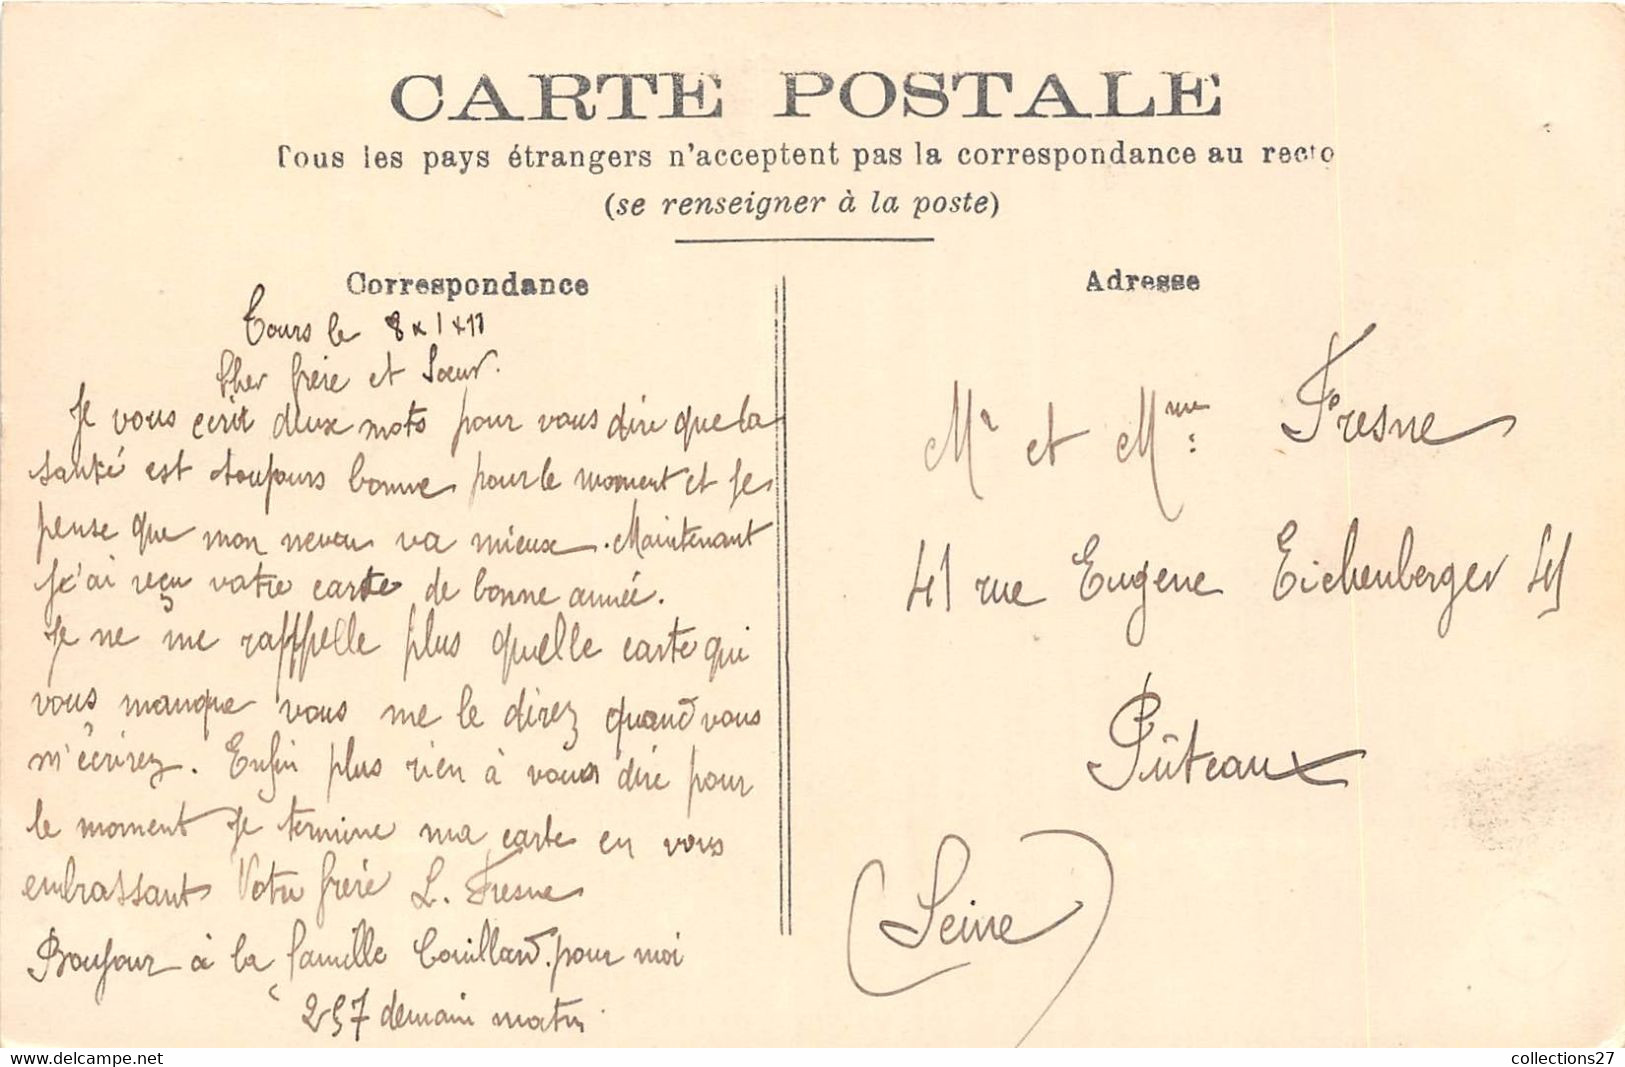 CARTE POSTALE
Tous les pays étrangers n'acceptent pas la correspondance au recto
(se renseigner à la poste)
Correspondance
Tours le 8 x 1 x 11
Cher frère et Sœur.
Je vous écrit deux mots pour vous dire que la
santé est toujours bonne pour le moment et je
pense que mon neveu va mieux. Maintenant
j'ai reçu votre carte de bonne année.
Je ne me rappelle plus quelle carte qui
vous manque vous me le direz quand vous
m'écrirez. Enfin plus rien à vous dire pour
le moment je termine ma carte en vous
embrassant Votre frère L. Fresne
Bonjour à la famille Couillard. pour moi
257 demain matin
Adresse
Mr et Mme: Fresne
41 rue Eugene Eichenberger 41
Pûteaux
(Seine)
collections27